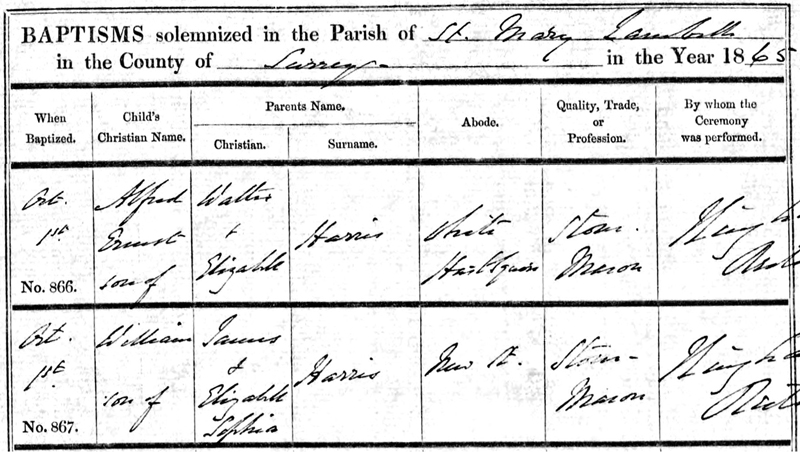 BAPTISMS solemnized in the Parish of St. Mary Lambeth
in the County of Surrey in the Year 1865
When Baptized.
Child's Christian Name.
Parents Name.
Christian.
Surname.
Abode.
Quality, Trade, or Profession.
By whom the Ceremony was performed.
Oct. 1st
No. 866.
Alfred Ernest son of
Walter & Elizabeth
Harris
White Hart Square
Stone Mason
Oct. 1st
No. 867.
William son of
James & Elizabeth Sophia
Harris
New St.
Stone Mason